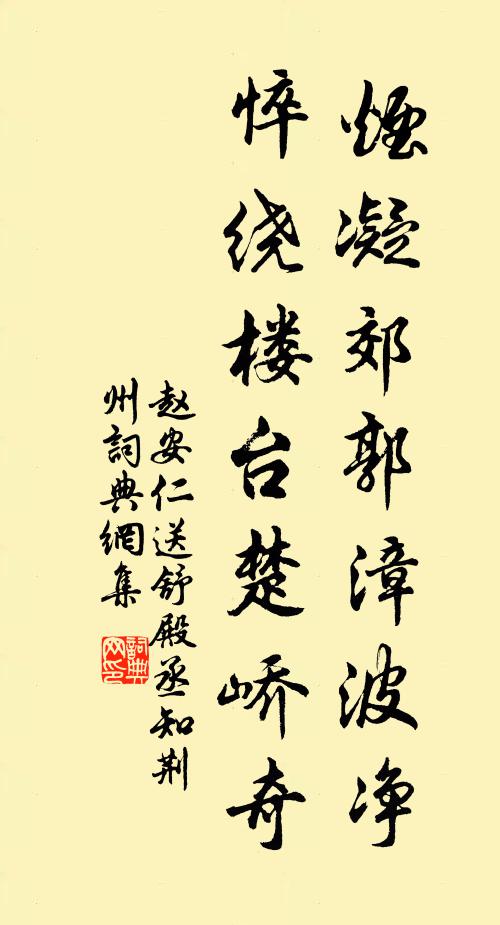 烟凝郊郭漳波净
悴绕楼台楚峤奇
赵安仁送舒殿丞知荆
州詞典網集
詞典网印